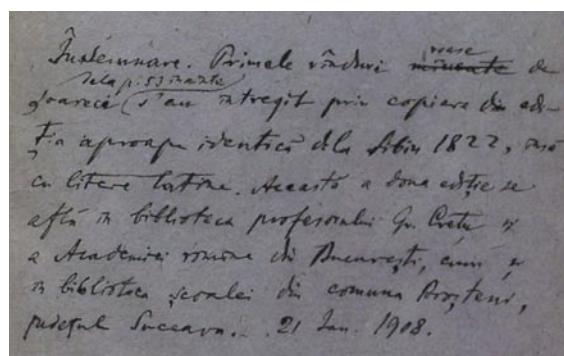 Îndemnare. Primele rînduri mîncate roase de
dela p. 53 înainte
șoareci s'au întregit prin copiare din edi-
ția aproape identică dela Sibiu 1822, însă
cu litere latine. Această a doua ediție se
află în biblioteca profesorului Gr. Crețu și
a Academiei romîne din București, cum și
în biblioteca școalei din comuna Broșteni,
județul Suceava. 21 Ian. 1908.